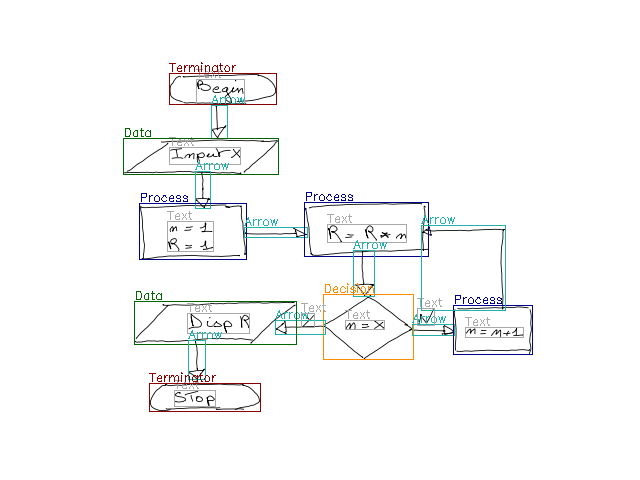 Terminator
Text
Begin
Arrow
Data
Text
Input X
Arrow
Process
Text
n = 1
R = 1
Arrow
Process
Text
R = R * n
Arrow
Arrow
Decision
Text
n = x
Arrow
Text
Process
Text
n = n+1
Arrow
Text
Data
Text
Disp R
Arrow
Terminator
Text
STop